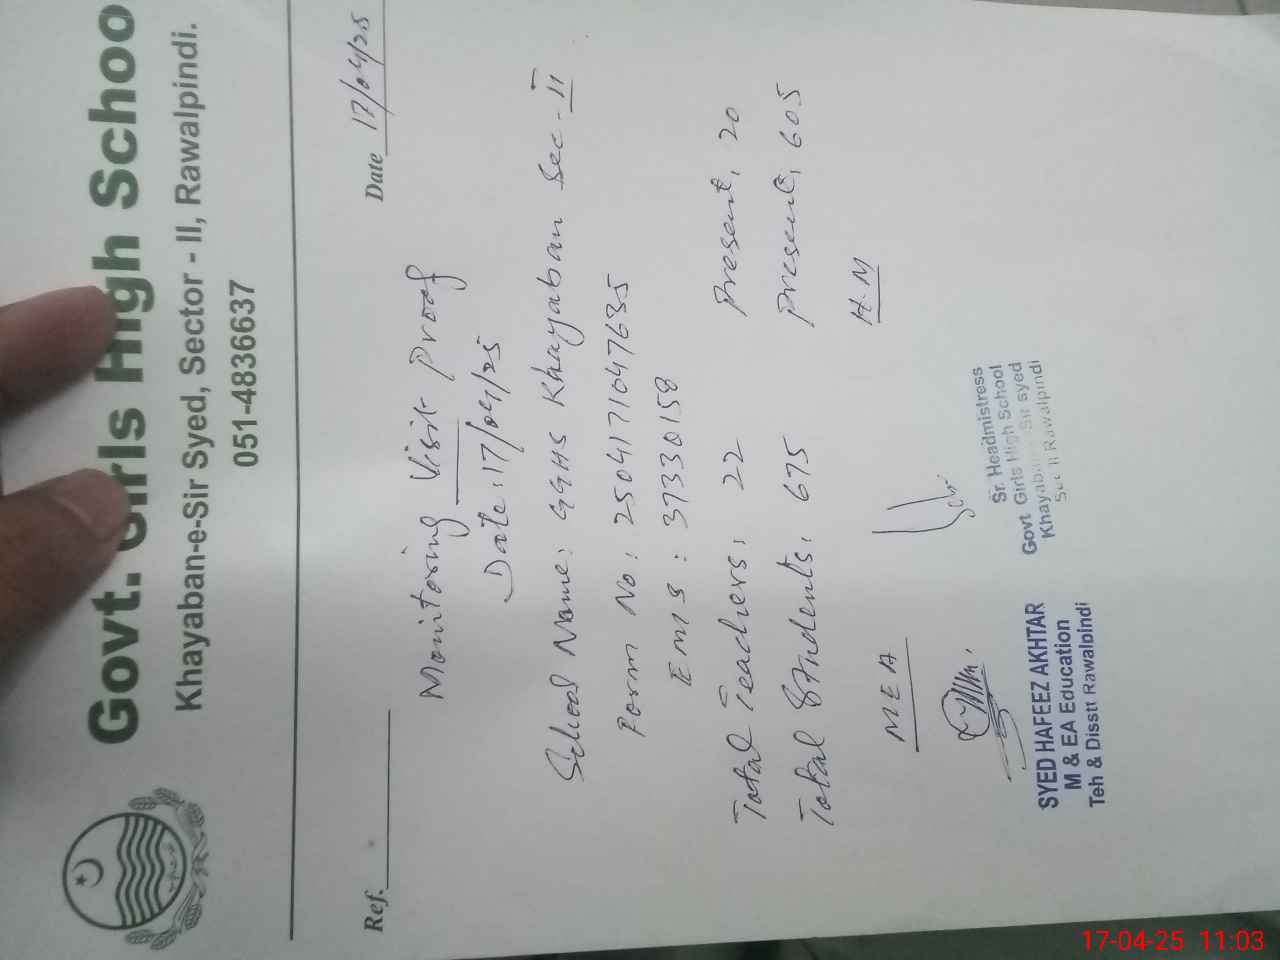 Govt. Girls High Schoo
Khayaban-e-Sir Syed, Sector - II, Rawalpindi.
051-4836637
Ref. Date 17/04/25
Monitoring Visit Proof
Date: 17/04/25
School Name: GGHS Khayaban Sec-II
Form No: 2504171047635
Ems: 37330158
Total Teachers, 22 Present, 20
Total Students, 675 Present, 605
MEA H.M
Sr. Headmistress
Govt Girls High School
Khayaban Sir syed
Sec II Rawalpindi
SYED HAFEEZ AKHTAR
M & EA Education
Teh & Disstt Rawalpindi
17-04-25 11:03